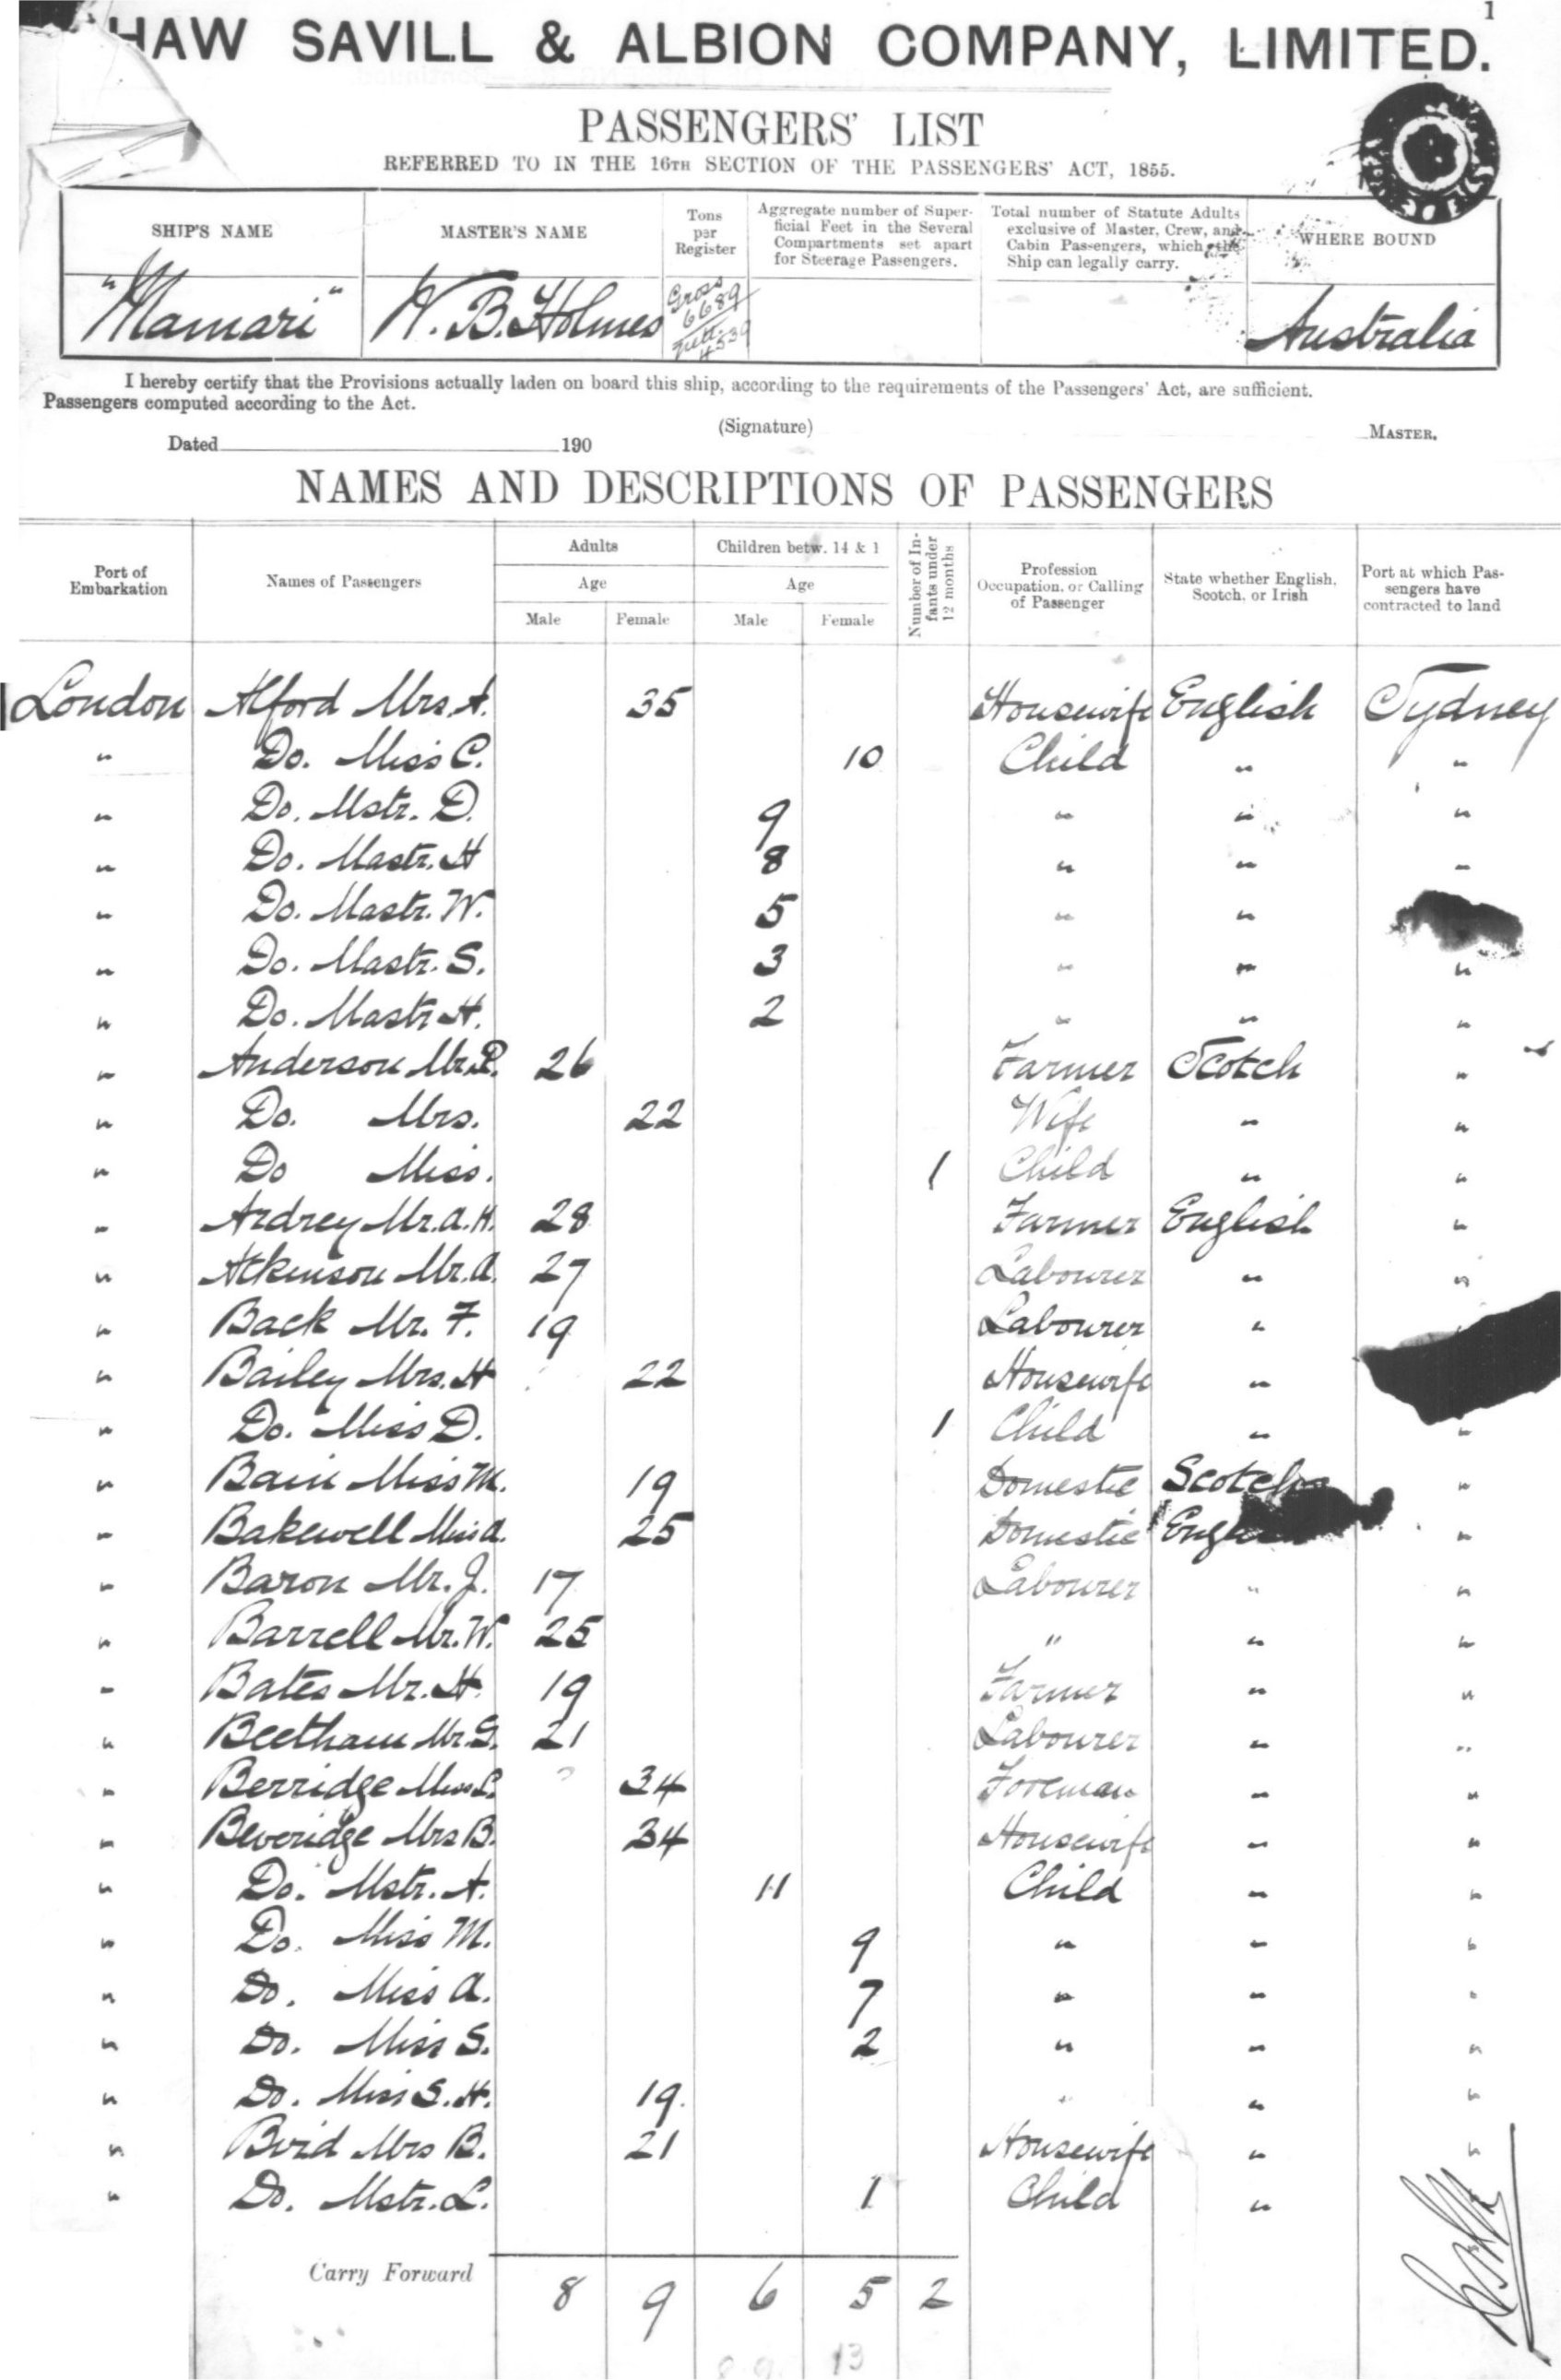 HAW SAVILL & ALBION COMPANY, LIMITED.
1
PASSENGERS' LIST
REFERRED TO IN THE 16TH SECTION OF THE PASSENGERS' ACT, 1855.
SHIP'S NAME
MASTER'S NAME
Tons per Register
Aggregate number of Superficial Feet in the Several Compartments set apart for Steerage Passengers.
Total number of Statute Adults exclusive of Master, Crew, and Cabin Passengers, which the Ship can legally carry.
WHERE BOUND
"Mamari" W. B. Holmes Gross 6689 Nett. 4539 Australia
I hereby certify that the Provisions actually laden on board this ship, according to the requirements of the Passengers' Act, are sufficient.
Passengers computed according to the Act.
(Signature) MASTER.
Dated 190
NAMES AND DESCRIPTIONS OF PASSENGERS
Port of Embarkation
Names of Passengers
Adults
Age
Male Female
Children betw. 14 & 1
Age
Male Female
Number of Infants under 12 months
Profession Occupation, or Calling of Passenger
State whether English, Scotch, or Irish
Port at which Passengers have contracted to land
London Alford Mrs. A. 35 Housewife English Sydney
" Do. Miss C. 10 Child " "
" Do. Mstr. D. 9 " " "
" Do. Mastr. H 8 " " "
" Do. Mastr. W. 5 " "
" Do. Mastr. S. 3 " " "
" Do. Mastr H. 2 " " "
" Anderson Mr. P. 26 Farmer Scotch "
" Do. Mrs. 22 Wife " "
" Do Miss. 1 Child " "
" Ardrey Mr. A. H. 28 Farmer English "
" Atkinson Mr. A. 27 Labourer " "
" Back Mr. F. 19 Labourer "
" Bailey Mrs. H 22 Housewife "
" Do. Miss D. 1 Child " "
" Bain Miss M. 19 Domestic Scotch "
" Bakewell Miss A. 25 Domestic "
" Baron Mr. J. 17 Labourer " "
" Barrell Mr. W. 25 " " "
" Bates Mr. H. 19 Farmer " "
" Beetham Mr. G. 21 Labourer " "
" Berridge Miss L. 34 Foreman " "
" Beveridge Mrs B. 34 Housewife " "
" Do. Mstr. A. 11 Child " "
" Do. Miss M. 9 " " "
" Do. Miss A. 7 " " "
" Do. Miss S. 2 " " "
" Do. Miss S. H. 19. " " "
" Bird Mrs B. 21 Housewife " "
" Do. Mstr. L. 1 Child "
Carry Forward 8 9 6 5 2
13